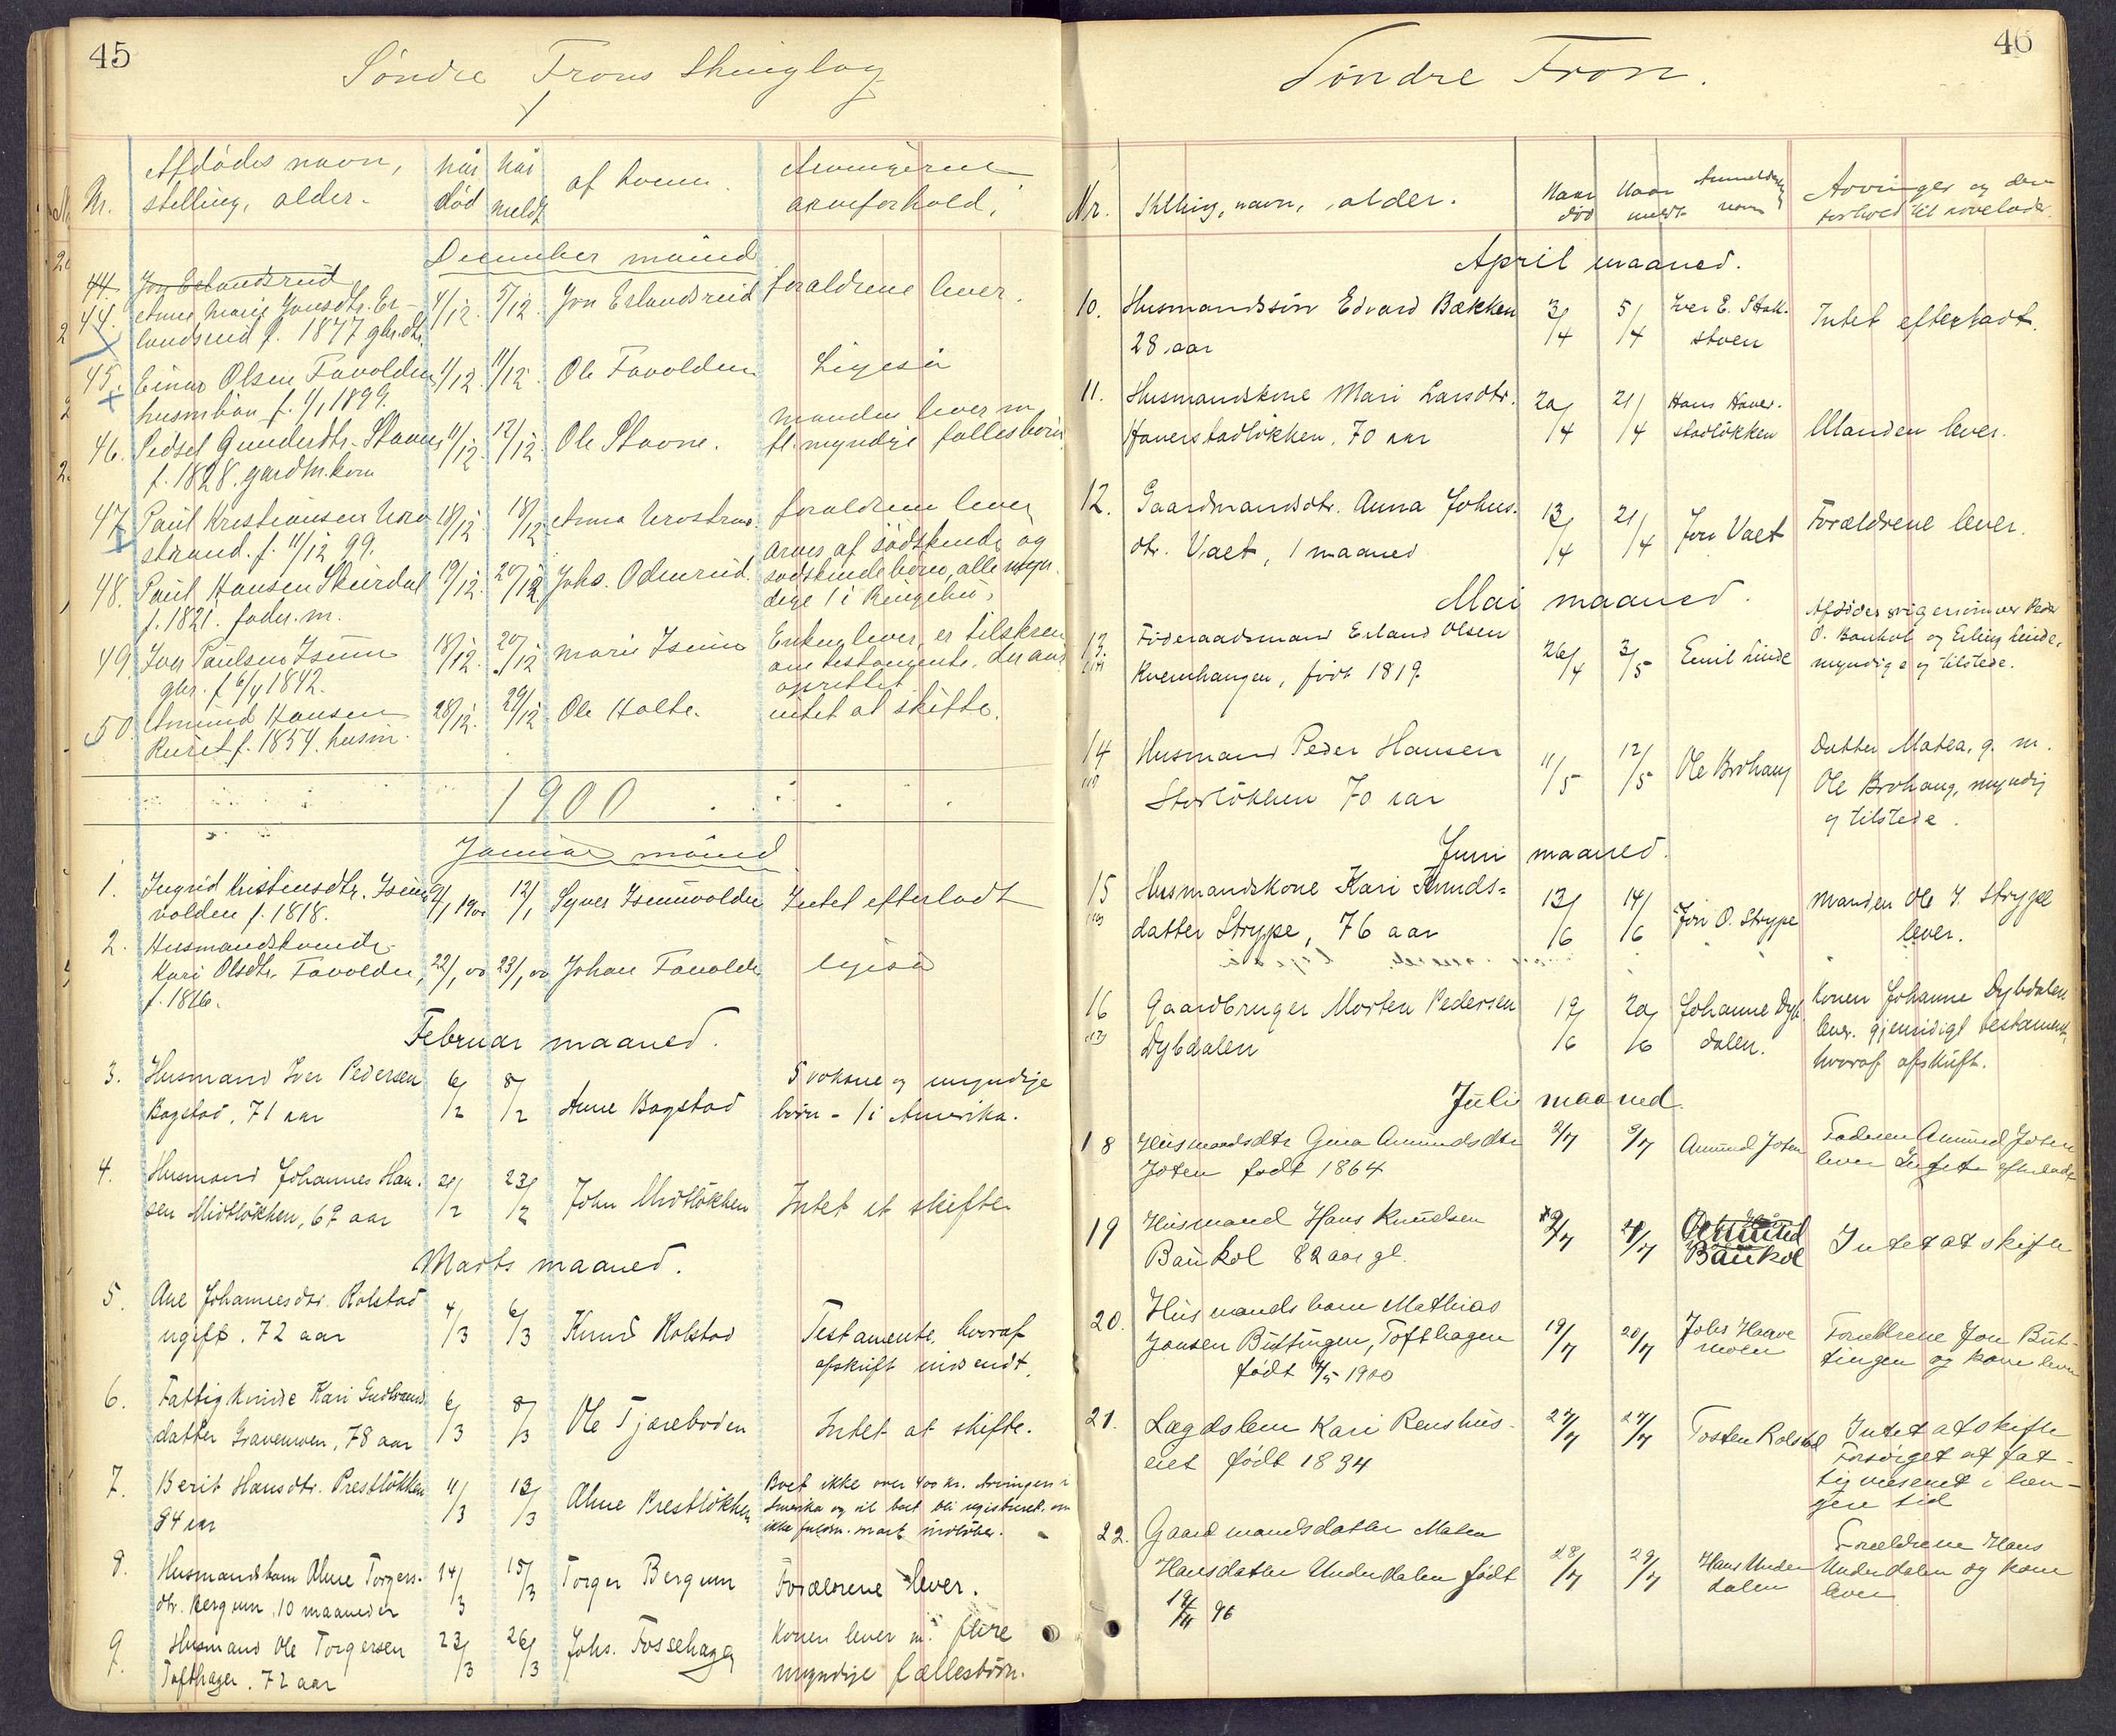 45
Søndre Frons thinglag
Nr. Afdødes navn, stilling, alder. når død når meldt af hvem. Arvingerne arveforhold.
December månd
44. Jon Erlandsrud
44. Anne Marie Jonsdtr. Er- 4/12. 5/12 Jon Erlandsrud foraldrene lever.
landsrud f. 1877 gbr.dtr.
45. Einar Olsen Favolden /12 11/12. Ole Favolden Ligeså
husmbån f. 1/1 1899.
46. Pedsel Gundersdtr. Stavne 11/12. 12/12. Ole Stavne. manden lever m.
f. 1828. gårdm.kone fl. myndige fallesbørn
47 Paul Kristiansen Uro- 18/12 18/12 Anna Urostrand. foraldrene lever
strand. f. 11/12 99.
48. Paul Hansen Skurdal 19/12. 20/12 Johs. Odenrud. arves af sødskende og
f. 1821. foder.m. sødskendebørn, alle myn-
dige 1 i Ringebu.
49. Iver Paulsen Isum 18/12. 20/12 Marie Isum Enken lever, er tilskrev
gbr. f. 6/4 1842. om testamente,
oprettet
50. Amund Hansen 28/12. 29/12 Ole Holte. intet at skifte.
Ruret f. 1854. husm.
1900
Januar månd
1. Ingrid Kristensdtr. Isum- 9/1 1900 12/1 Syver Isumvolden Intet efterladt
volden f. 1818.
2. Husmandskvinde
Kari Olsdtr. Favolden, 22/1 00 23/1 00 Johan Favolden ligeså
f. 1816.
Februar maaned.
3. Husmand Iver Pedersen 6/2 8/2 Anne Bagstad 5 voksne og myndige
Bagstad, 71 aar børn - 1 i Amerika.
4. Husmand Johannes Han- 21/2 23/2 John Midtløkken Intet at skifte
sen Midtløkken, 69 aar
Marts maaned.
5. Ane Johannesdtr. Rolstad 4/3 6/3 Knud Rolstad Testamente, hvoraf
ugift. 72 aar afskrift indsendt.
6. Fattigkvinde Kari Gudbrands- 6/3 8/3 Ole Tjæreboden Intet at skifte.
datter Gravemoen, 78 aar
7. Berit Hansdtr. Prestløkken 11/3 13/3 Anne Prestløkken Boet ikke over 400 kr. Arvingen i
84 aar Amerika og vil boet bli registreret. om
ikke fuldm. snart indløber.
8. Husmandsbarn Anne Torgers- 14/3 15/3 Torger Bergum Forældrene lever.
dtr. Bergum, 10 maaneder
9. Husmand Ole Torgersen 23/3 26/3 Johs. Fossehagen Konen lever m. flere
Tofthagen. 72 aar myndige fællesbørn.
46
Søndre Fron.
Nr. Stilling, navn, alder. Naar død Naar meldt Anmelderens navn Arvinger og deres forhold til arvelader.
April maaned.
10. Husmandssøn Edvard Bækken 3/4 5/4 Iver E. Stok- Intet efterladt.
28 aar stoen
11. Husmandskone Mari Larsdtr. 20/4 21/4 Hans Haver- Manden lever.
Haverstadløkken, 70 aar stadløkken
12. Gaardmandsdtr. Anna Johns- 13/4 21/4 Jon Valt Forældrene lever.
dtr. Valt, 1 maaned
Mai maaned.
13. Føderaadsmand Erland Olsen 26/4 3/5 Emil Linde Afdødes svigersønner Peder
Kvernhaugen, født 1819. O. Baukol og Erling Linde,
myndige og tilstede.
14 Husmand Peder Hansen 11/5 12/5 Ole Brohaug Datter Matea, g. m.
Storløkken 70 aar Ole Brohaug, myndig
og tilstede.
Juni maaned.
15 Husmandskone Kari Knuds- 13/6 14/6 Jon O. Strype Manden Ole J. Strype
datter Strype, 76 aar lever.
16 Gaardbruger Morten Pedersen 19/6 20/6 Johanne Dyb- Konen Johanne Dybdalen
Dybdalen dalen. lever. gjensidigt testament,
hvoraf afskrift.
Juli maaned.
18 Husmandsdtr Gina Amundsdtr 2/7 9/7 Amund Joten Faderen Amund Joten
Joten født 1864 lever Intet efterladt
19 Husmand Hans Knudsen 19/7 21/7 Baukol Intet at skifte
Baukol 82 aar gl.
20. Husmandsbarn Mathias 19/7 20/7 Johs Haave Forældrene Jon But-
Jonsen Buttingen, Tofthagen moen tingen og kone lever
født 4/5 1900
21. Lægdslem Kari Renshus- 27/7 27/7 Tosten Rolstad Intet at skifte
eiet født 1834 Forsørget af fat-
tigvæsenet i læn-
gere tid
22. Gaardmandsdatter Matea Forældrene Hans
Hansdatter Underdalen født 28/7 29/7 Hans Under- Underdalen og kone
96 dalen lever